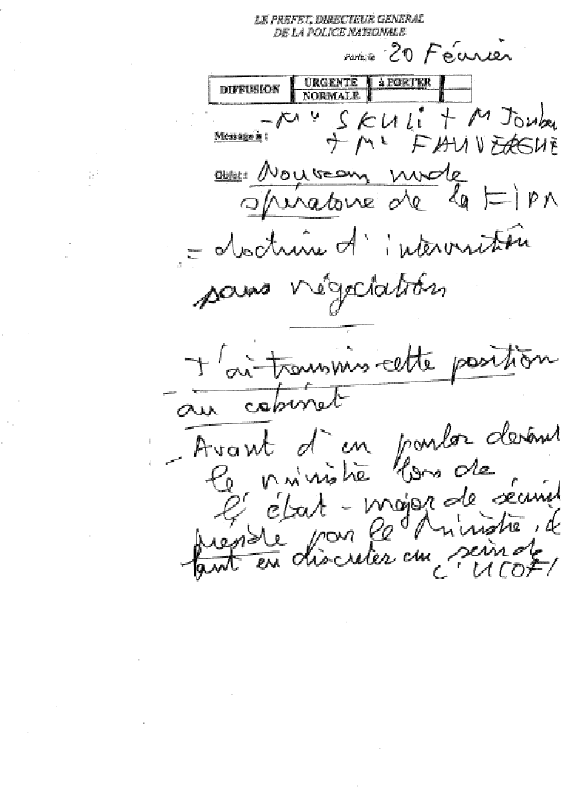 LE PREFET, DIRECTEUR GENERAL
DE LA POLICE NATIONALE
Paris, le 20 Février
DIFFUSION URGENTE à PORTER
NORMALE
- Mr SKULI + M Joubu
Message à : + Mr FAUVERGUE
Objet : Nouveau mode
opératoire de la FIPN
= doctrine d'intervention
sans négociation
J'ai transmis cette position
au cabinet
- Avant d'en parler devant
le ministre lors de
l'état-major de sécurit
préside par le Ministre, il
faut en discuter au sein de
l'UCOFI